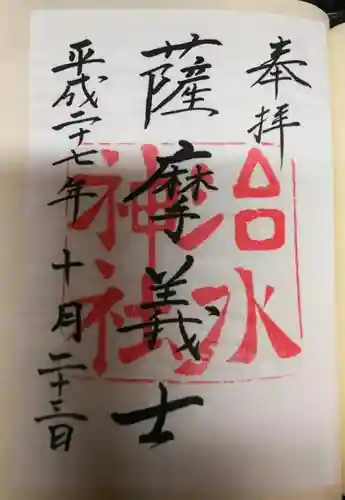 奉拝
薩摩義士
平成二十七年 十月二十三日
治水
神社